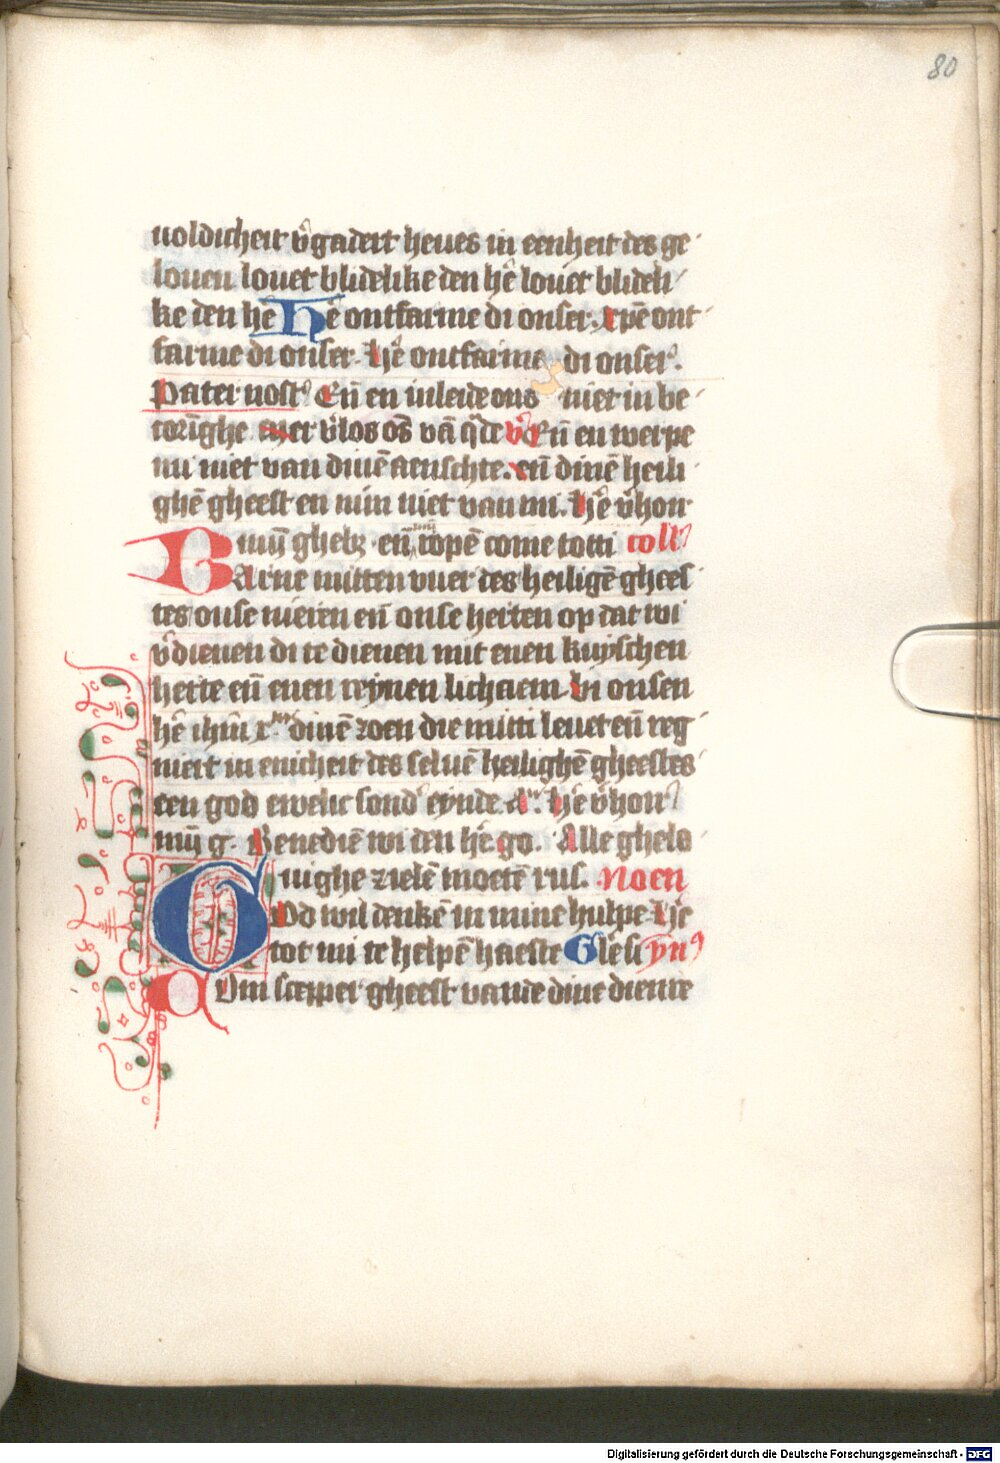 80
uoldicheit v̄gadert heues in eenheit des ge
louen louet blidelike den hē louet blideli
ke den hē Hē ontfarme di onser. xpē ont
farme di onser. hē ontfarme di onser.
Pater nost' Eñ en inleide ons niet in be
coringhe. mer v̄los os vā q̄de v̄ Eñ en werpe
mi niet van dinē aenschte. eñ dinē heili
ghē gheest en nim niet van mi. hē v̄hoir
mijn ghebz eñ mī ropē come totti coll'
Barne mitten vuer des heiligē ghees
tes onse nieren eñ onse herten op dat wi
v̄dienen di te dienen mit enen kuyschen
herte eñ enen reynen lichaem bi onsen
hē ihm̄ xm dinē zoen die mitti leuet eñ reg
niert in enicheit des seluē heilighē gheestes
een god ewelic sond' eynde Am. hē v̄hoir
mijn g. Benediē wi den hē. go. Alle ghelo
uighe zielē moetē rus. Noen
God wil denkē in mine hulpe hē
tot mi te helpē haeste Glē si ȳn9
Om scepper gheest vande dine diente
Digitalisierung gefördert durch die Deutsche Forschungsgemeinschaft - DFG